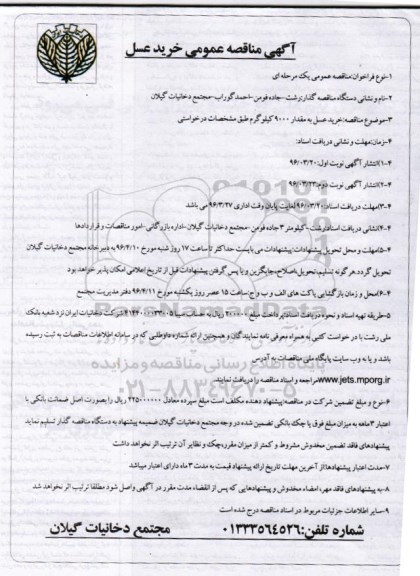 آگهی مناقصه عمومی خرید عسل
۱-نوع فراخوان:مناقصه عمومی یک مرحله ای
۲-نام و نشانی دستگاه مناقصه گذار:رشت-جاده فومن-احمدگوراب-مجتمع دخانیات گیلان
۳-موضوع مناقصه:خرید عسل به مقدار ۹۰۰۰ کیلوگرم طبق مشخصات درخواستی
۴-زمان:مهلت و نشانی دریافت اسناد:
۴-۱)انتشار آگهی نوبت اول:۹۶/۰۳/۲۰
۴-۲)انتشار آگهی نوبت دوم:۹۶/۰۳/۲۳
۴-۳)مهلت دریافت اسناد:۹۶/۰۳/۲۰ لغایت پایان وقت اداری ۹۶/۳/۲۷ می باشد
۴-۴)نشانی دریافت اسناد:رشت-کیلومتر ۳ جاده فومن-مجتمع دخانیات گیلان-اداره بازرگانی-امور مناقصات و قراردادها
۴-۵)مهلت و محل تحویل پیشنهادات:پیشنهادات می بایست حداکثر تا ساعت ۱۷ روز شنبه مورخ ۹۶/۴/۱۰ به دبیرخانه مجتمع دخانیات گیلان
تحویل گردد.هر گونه تسلیم،تحویل،اصلاح،جایگزین و یا پس گرفتن پیشنهادات قبل از تاریخ اعلامی امکان پذیر خواهد بود
۴-۶)محل و زمان بازگشایی پاکت های الف و ب و ج:ساعت ۱۵ عصر روز یکشنبه مورخ ۹۶/۴/۱۱ دفتر مدیریت مجتمع
۵-طریقه تهیه اسناد و نحوه دریافت اسناد:پرداخت مبلغ ۲۰۰۰۰۰ ریال به حساب سیبا شرکت دخانیات ایران نزد شعبه بانک
ملی رشت با در خواست کتبی به همراه معرفی نامه نمایندگان و همچنین ارائه شماره داوطلبی که در سامانه اطلاعات مناقصات به ثبت رسیده
باشد و یا به وب سایت پایگاه ملی مناقصات به آدرس
www.jets.mporg.irمراجعه و اسناد مناقصه را دریافت نمایند.
۶-نوع و مبلغ تضمین شرکت در مناقصه:پیشنهاد دهنده مکلف است مبلغ سپرده معادل ۲۲۵۰۰۰۰۰۰ ریال را بصورت اصل ضمانت بانکی با
اعتبار ۳ماهه به میزان مبلغ فوق یا چک بانکی تضمین شده در وجه مجتمع دخانیات گیلان ضمیمه پیشنهاد به دستگاه مناقصه گذار تسلیم نماید
پیشنهادهای فاقد تضمین مخدوش مشروط و کمتر از میزان مقرر،چک و نظایر آن ترتیب اثر نخواهد داشت
۷-مدت اعتبار پیشنهادها:از آخرین مهلت تاریخ ارائه پیشنهاد قیمت به مدت ۳ ماه دارای اعتبار میباشد
۸-به پیشنهادهای فاقد مهر، امضاء مخدوش و پیشنهادهایی که پس از انقضاء مدت مقرر در آگهی واصل شود مطلقا ترتیب اثر نخواهد شد
۹-سایر اطلاعات جزئیات مربوط در اسناد مناقصه درج شده است
شماره تلفن:۰۱۳۳۳۵۶۴۵۲۶ مجتمع دخانیات گیلان
پایگاه اطلاع رسانی مناقصه و مزایده
۰۲۱-۸۸۳۴۹۶۷۰-۵